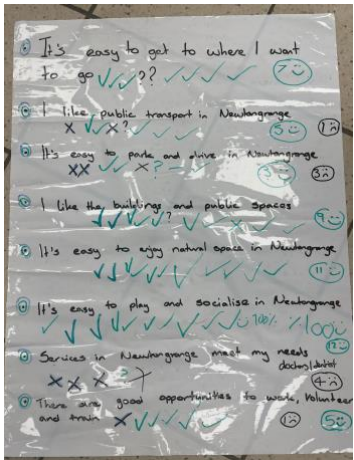 It's easy to get to where I want
to go ✓✓✓?? ✓✓✓✓ 7☺
I like public transport in Newtongrange
x ✓ x ? ✓✓✓ 5☺ 1☹
It's easy to park and drive in Newtongrange
xx ✓✓ x ? 3☹
I like the buildings and public spaces
✓✓✓✓✓? ✓ ✓✓✓ 9☺
It's easy to enjoy natural space in Newtongrange
✓✓✓✓✓✓✓✓✓✓✓ 11☺
It's easy to play and socialise in Newtongrange
✓✓✓✓✓✓✓✓✓✓ 100% 100
12☺
Services in Newtongrange meet my needs
doctors/dentist
x x x ? 4☹
There are good opportunities to work, Volunteer
and train x ✓✓✓✓✓ 1☹ 5☺